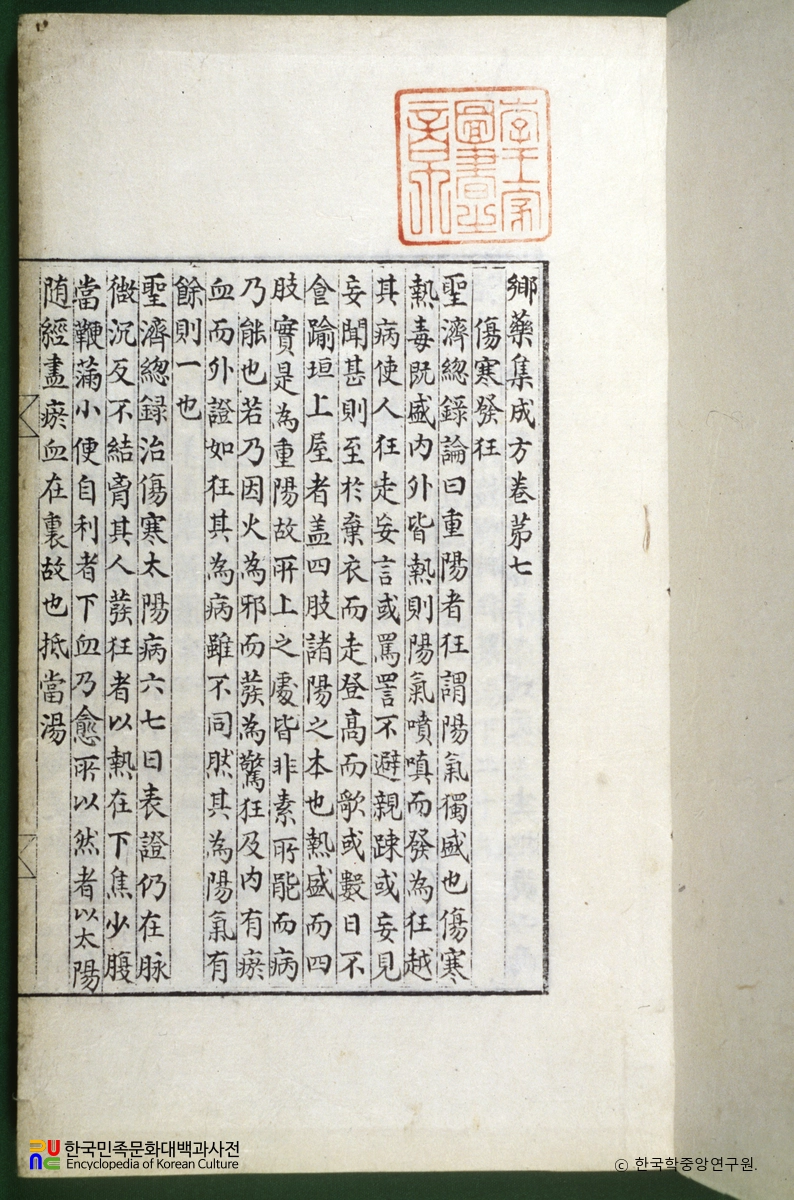 鄉藥集成方卷苐七
傷寒發狂
聖濟緫錄論曰重陽者狂謂陽氣獨盛也傷寒
熱毒旣盛內外皆熱則陽氣噴嗔而發爲狂越
其病使人狂走妄言或罵詈不避親踈或妄見
妄聞甚則至於棄衣而走登高而歌或數日不
食踰垣上屋者盖四肢諸陽之本也熱盛而四
肢實是為重陽故所上之處皆非素所能而病
乃能也若乃因火為邪而發為驚狂及內有瘀
血而外證如狂其為病雖不同然其為陽氣有
餘則一也
聖濟緫録治傷寒太陽病六七日表證仍在脉
微沉反不結胷其人發狂者以熱在下焦少腹
當鞕滿小便自利者下血乃愈所以然者以太陽
随經盡瘀血在裏故也抵當湯
한국민족문화대백과사전
Encyclopedia of Korean Culture
© 한국학중앙연구원.